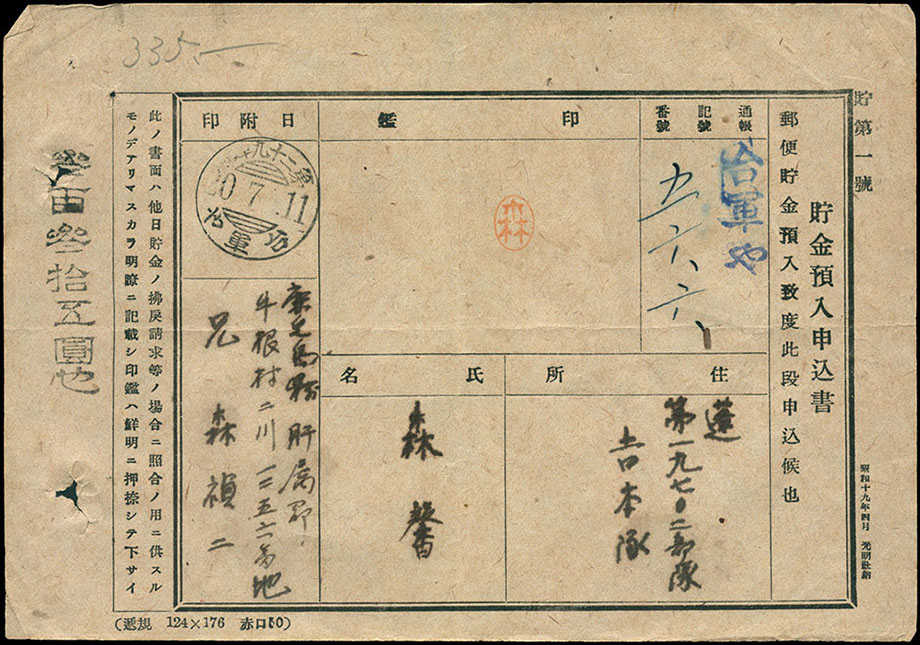 335.—
貯第一號
貯金預入申込書
郵便貯金預入致度此段申込候也
昭和十九年四月 光明社納
通帳
記號
番號
台軍や
九六六
印鑑
森
日附印
第二十九
20.7.11
台軍
住所
蓬
第一九七〇二部隊
吉本隊
氏名
森馨
鹿児島縣肝属郡
牛根村二川一三五六番地
兄 森禎二
此ノ書面ハ他日貯金ノ拂戻請求等ノ場合ニ照合ノ用ニ供スル
モノデアリマスカラ明瞭ニ記載シ印鑑ハ鮮明ニ押捺シテ下サイ
参百参拾五圓也
(遞規 124×176 赤口50)